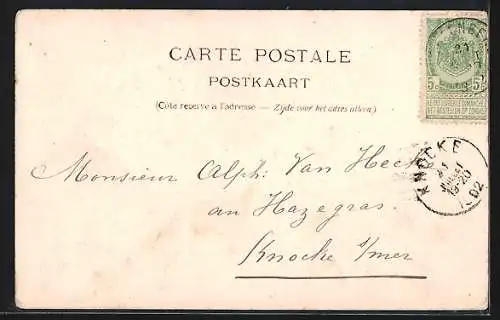 CARTE POSTALE
POSTKAART
(Côté réservé à l'adresse — Zijde voor het adres alleen.)
5c 5c
KNOCKE
1902
Monsieur Alph: Van Hecke
an Hazegras.
Knocke s/mer